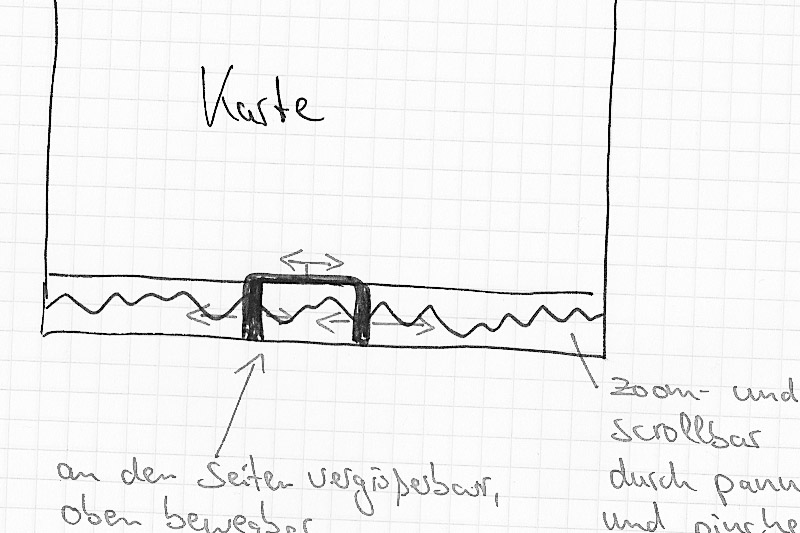 Karte
an den Seiten vergrößerbar,
oben bewegbar
zoom- und
scrollbar
durch
und